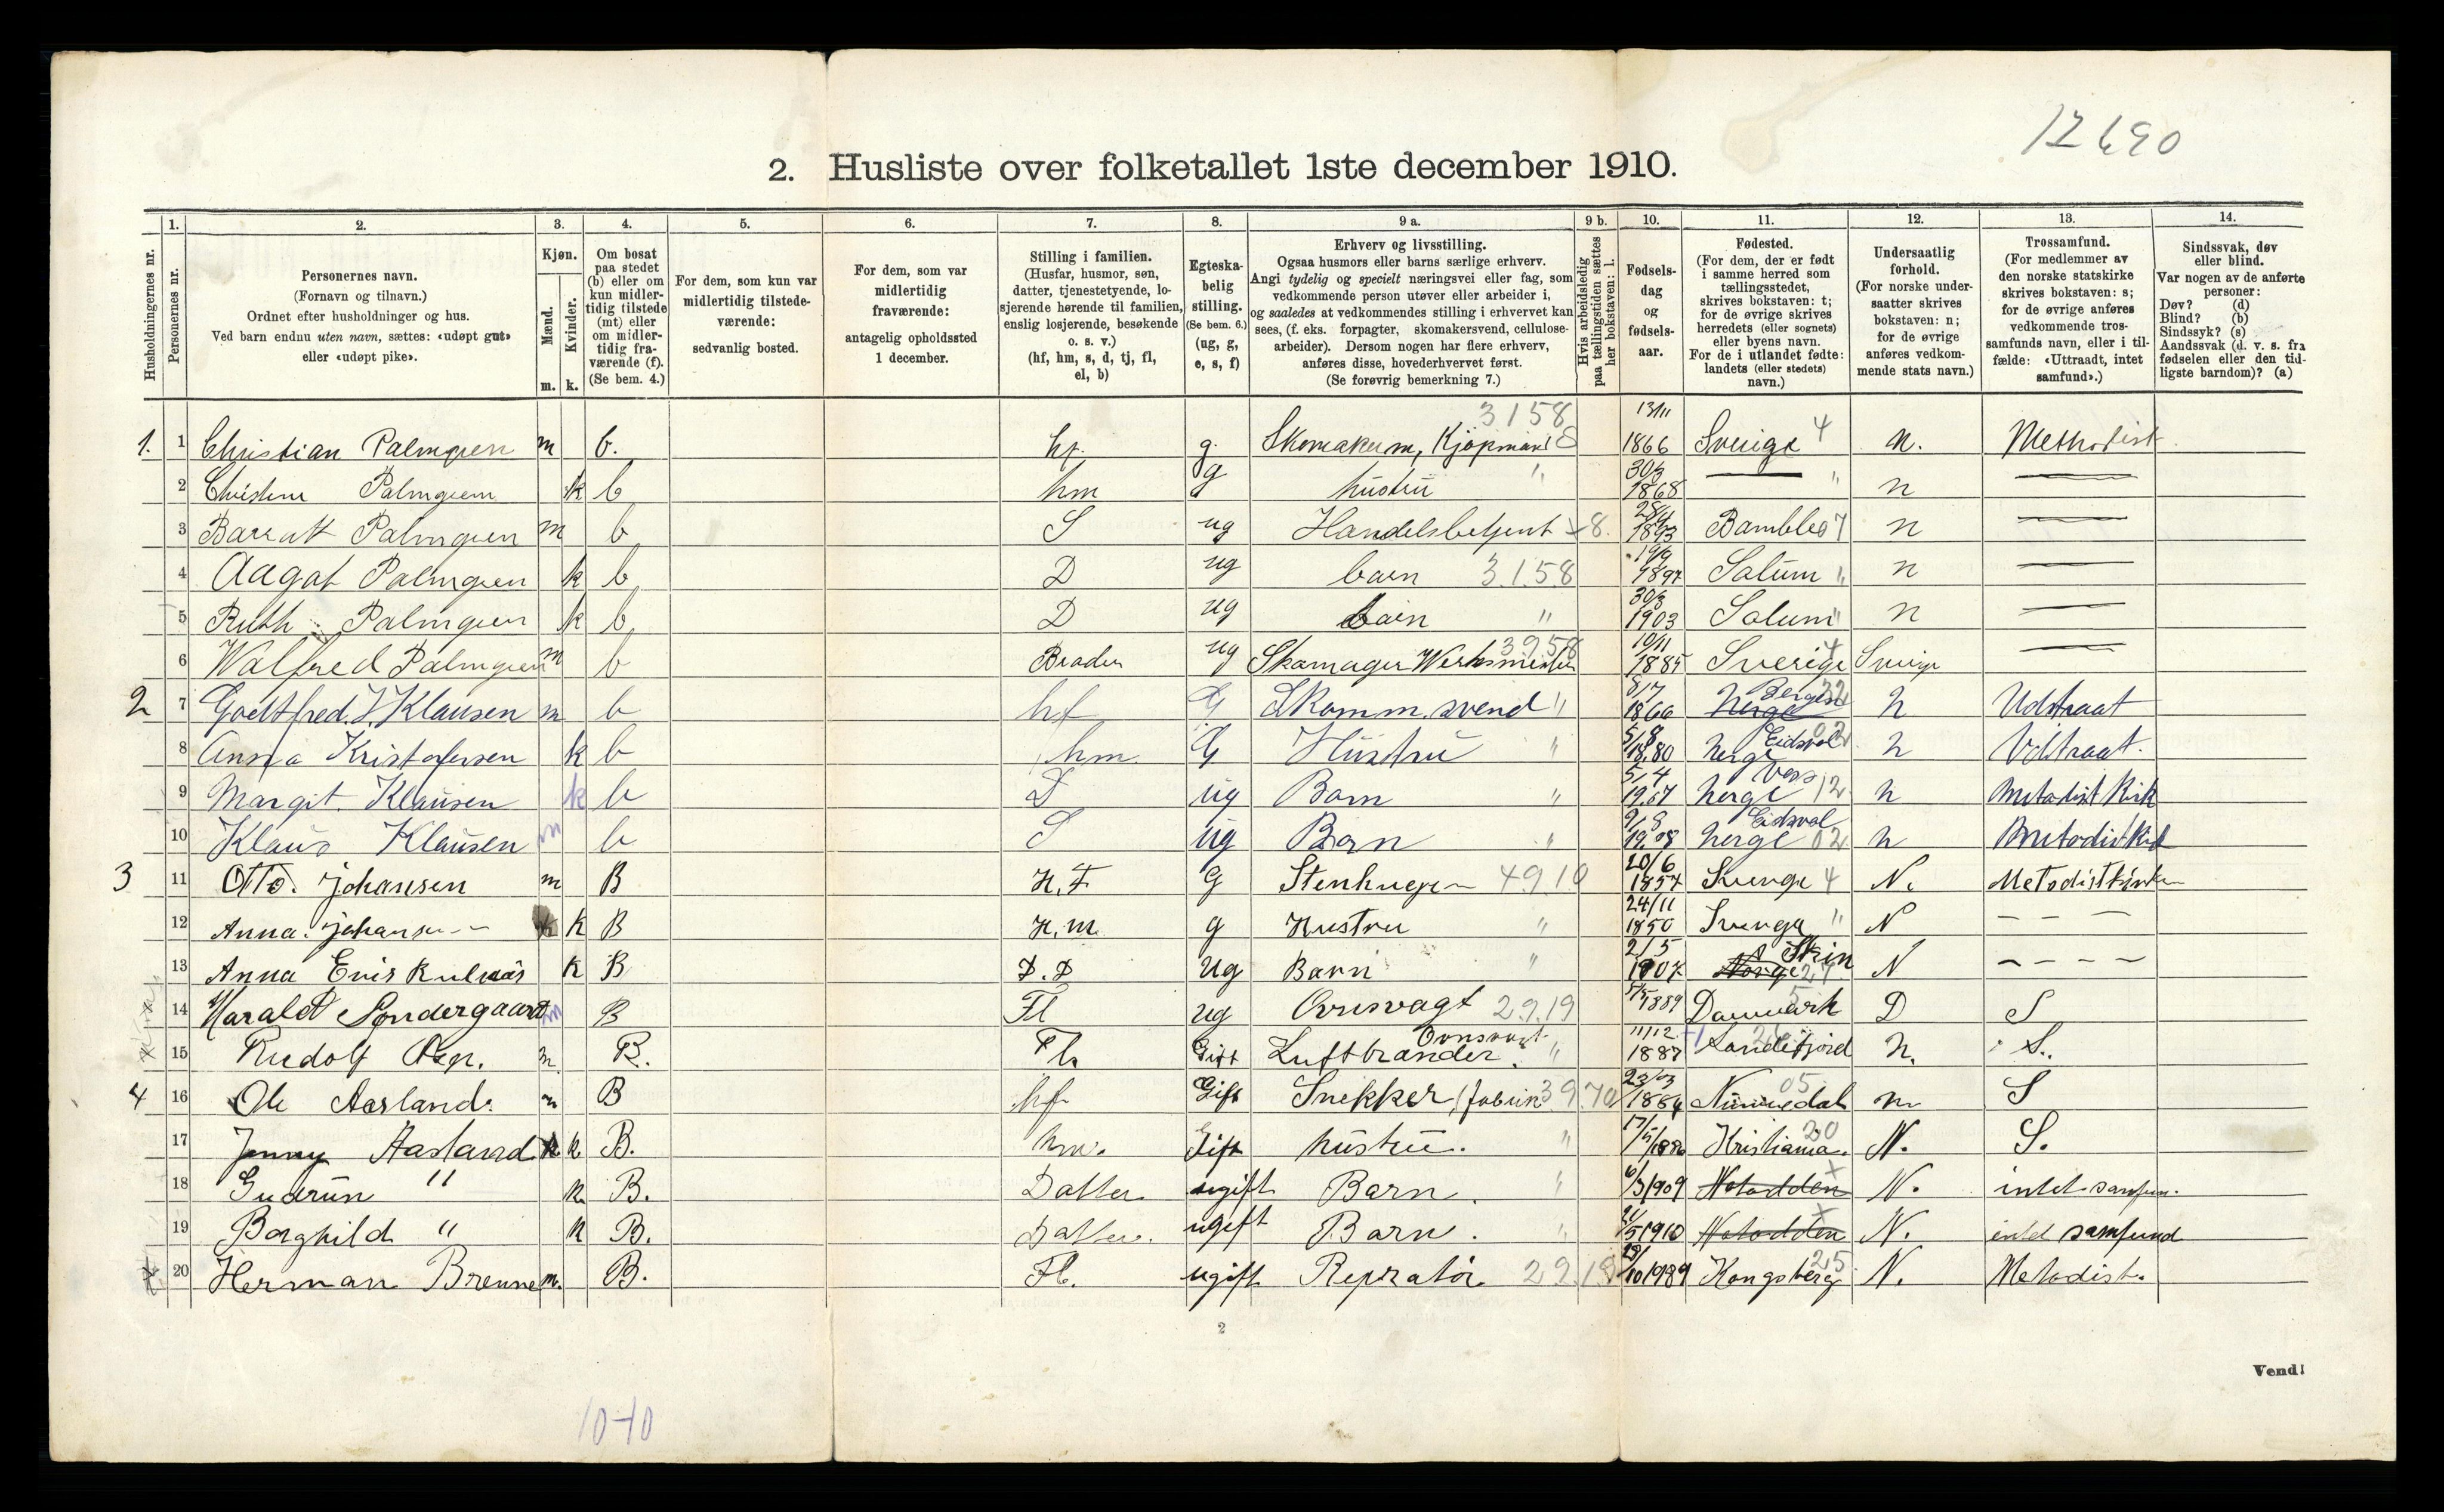 12690
2. Husliste over folketallet 1ste december 1910.
Husholdningernes nr.
1.
Personernes nr.
2.
Personernes navn.
(Fornavn og tilnavn.)
Ordnet efter husholdninger og hus.
Ved barn endnu uten navn, sættes: «udøpt gut»
eller «udøpt pike».
3.
Kjøn.
Mænd.
Kvinder.
m. k.
4.
Om bosat
paa stedet
(b) eller om
kun midler-
tidig tilstede
(mt) eller
om midler-
tidig fra-
værende (f).
(Se bem. 4.)
5.
For dem, som kun var
midlertidig tilstede-
værende:
sedvanlig bosted.
6.
For dem, som var
midlertidig
fraværende:
antagelig opholdssted
1 december.
7.
Stilling i familien.
(Husfar, husmor, søn,
datter, tjenestetyende, lo-
sjerende hørende til familien,
enslig losjerende, besøkende
o. s. v.)
(hf, hm, s, d, tj, fl,
el, b)
8.
Egteska-
belig
stilling.
(Se bem. 6.)
(ug, g,
e, s, f)
9 a.
Erhverv og livsstilling.
Ogsaa husmors eller barns særlige erhverv.
Angi tydelig og specielt næringsvei eller fag, som
vedkommende person utøver eller arbeider i,
og saaledes at vedkommendes stilling i erhvervet kan
sees, (f. eks. forpagter, skomakersvend, cellulose-
arbeider). Dersom nogen har flere erhverv,
anføres disse, hovederhvervet først.
(Se forøvrig bemerkning 7.)
9 b.
Hvis arbeidsledig
paa tællingstiden sættes
her bokstaven: l.
10.
Fødsels-
dag
og
fødsels-
aar.
11.
Fødested.
(For dem, der er født
i samme herred som
tællingsstedet,
skrives bokstaven: t;
for de øvrige skrives
herredets (eller sognets)
eller byens navn.
For de i utlandet fødte:
landets (eller stedets)
navn.)
12.
Undersaatlig
forhold.
(For norske under-
saatter skrives
bokstaven: n;
for de øvrige
anføres vedkom-
mende stats navn.)
13.
Trossamfund.
(For medlemmer av
den norske statskirke
skrives bokstaven: s;
for de øvrige anføres
vedkommende tros-
samfunds navn, eller i til-
fælde: «Uttraadt, intet
samfund».)
14.
Sindssvak, døv
eller blind.
Var nogen av de anførte
personer:
Døv? (d)
Blind? (b)
Sindssyk? (s)
Aandssvak (d. v. s. fra
fødselen eller den tid-
ligste barndom)? (a)
1. 1 Christian Palmgren m b. hf. g. Skomakerm, Kjøpmand 3158 13/11 1866 Sverige 4 n. Methodist
2 Christine Palmgren k b hm g hustru " 30/3 1868 — " n —
3 Palmgren m b S ug Handelsbetjent 28/4 1893 Bamble 07 n —
4 Aagot Palmgren k b D ug barn 3158 19/9 1897 Solum " n —
5 Ruth Palmgren k b D ug barn " 30/3 1903 Solum " n —
6 Walfred Palmgren m b Broder ug Skomager Werksmester 3958 10/11 1885 Sverige 4 Sverige —
2 7 Goettfred. J. Klausen m b hf G Skomm. svend " 8/7 1866 Norge Bergen 32 n Udstraat
8 Anna Kristofersen k b hm G Hustru " 5/8 1880 Norge Eidsvol 02 n Udtraat.
9 Margit. Klausen k b D ug Barn " 5/4 1907 Norge 12 n Metodist Kirk
10 Klaus Klausen m b S ug Barn " 9/8 1908 Norge Eidsvol 02 n Metodistkirk
3 11 Otto. Johansen m B H. F G Stenhugger 4910 20/6 1857 Sverige 4 N. Metodistkirken
12 Anna. Johansen k B H. m g Hustru " 24/11 1850 Sverige " N — — —
13 Anna k B D. D Ug Barn " 2/5 1907 Norge Skien 27 N — — — —
14 Harald Søndergaard m B Fl ug Ovnsvagt 29.19 1889 Danmark 5 D S
15 Rudolf m. B. Fl. Gift Luftbrander. Ovnsvagt " 11/12 1887 Sandefjord n. S.
4 16 Ole Aasland. m B hf Gift Snekker, 39.70 23/03 1884 05 n. S
17 Jenny Aasland k B. hm. Gift hustru. " Kristiania. 20 N. S.
18 Gudrun " k. B. Datter ugift Barn. " 6/3 1909 Notodden x N. intet samfun.
19 Borghild " k B. Datter. ugift Barn. " 1910 Notodden x N. intet samfund
20 Herman Brenne m. B. Fl. ugift Repratør Kongsberg 25 N. Metodist.
2
Vend!
10-10